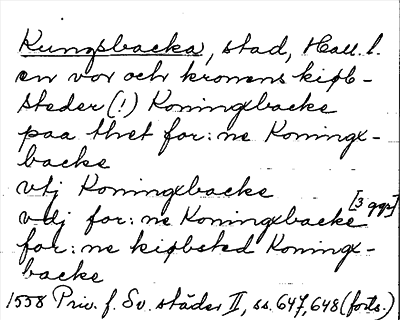 Kungsbacka, stad, Hall. l.
en vor och kronens kiøb-
steder (!) Koningxbacke
paa thet for:ne Koningx-
backe
vtj Koningxbacke
vdj for:ne Koningxbacke [3 ggr]
for:ne kiøbsted Koningx-
backe
1558 Priv. f. Sv. städer II, ss. 647, 648 (forts.)